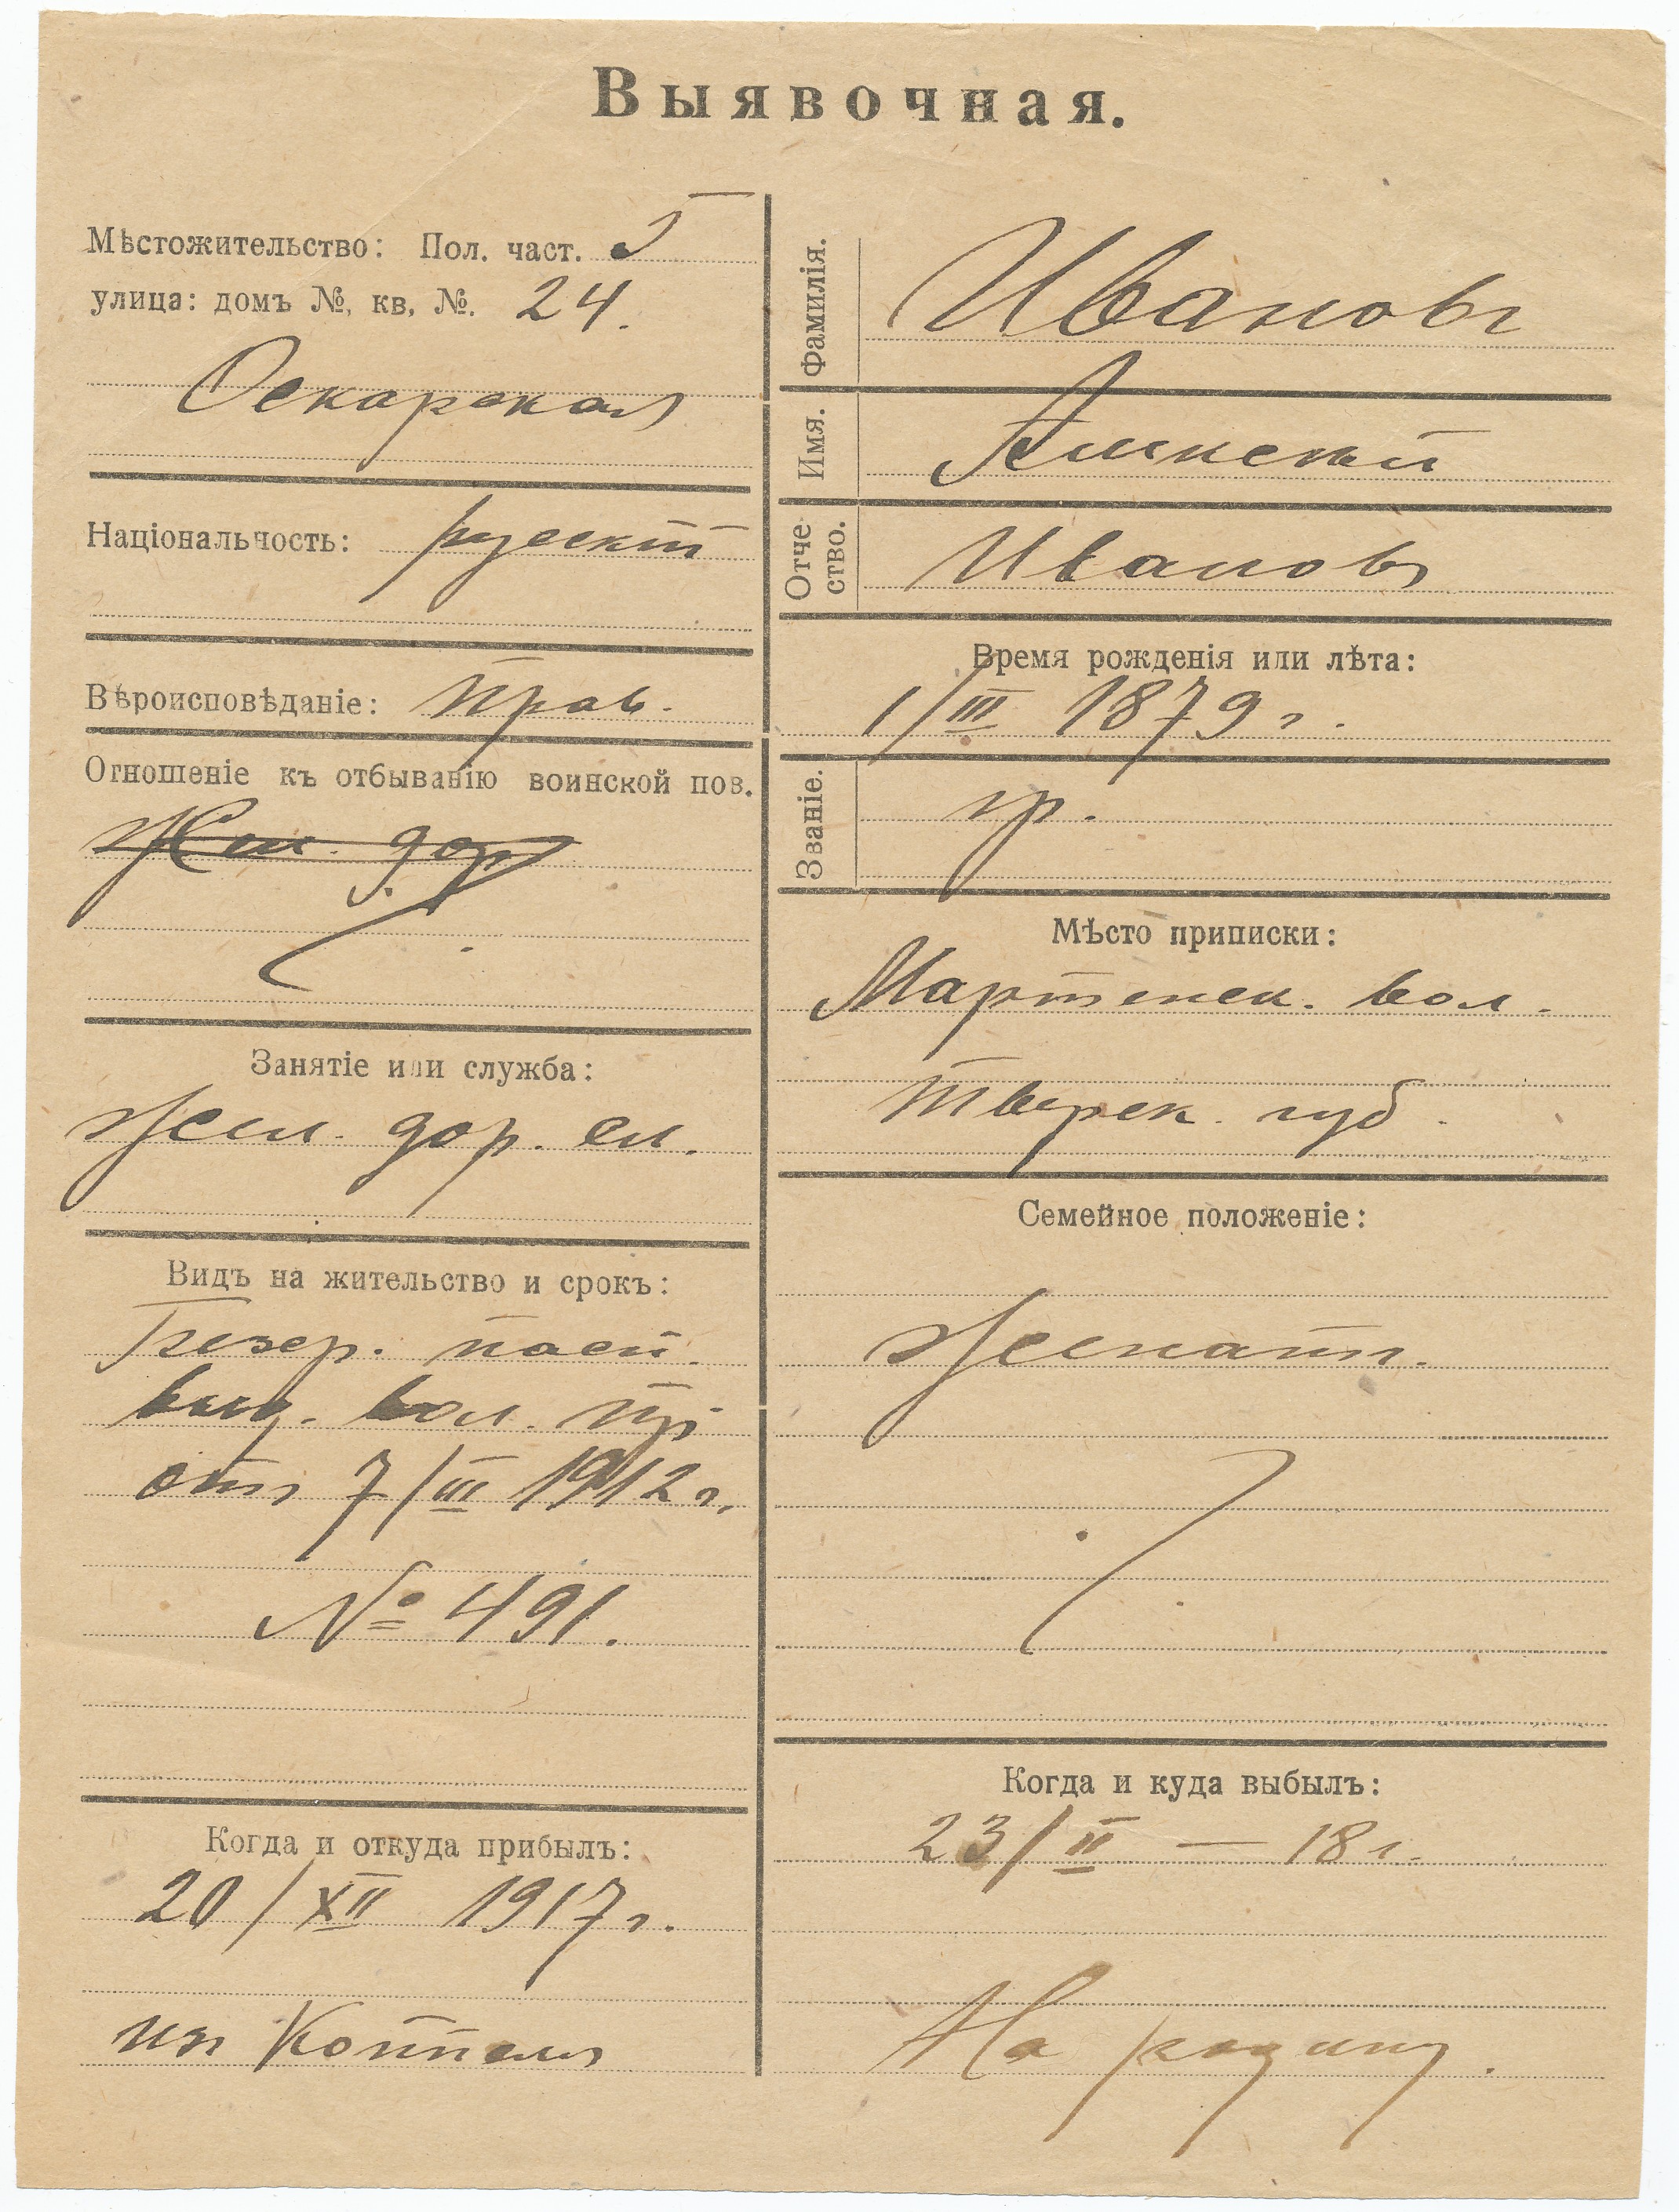 Выявочная.
Мѣстожительство: Пол. част. 5
улица: домъ №, кв, №. 24.
Оскарская
Національность: русскій
Вѣроисповѣданіе: Прав.
Отношеніе къ отбыванію воинской пов.
Жел. дор
Занятіе или служба:
Жел. дор. сл.
Видъ на жительство и срокъ:
Безср. пасп.
выд. вол. пр
отъ 7/III 1912 г.
№ 491.
Когда и откуда прибылъ:
20/XII 1917 г.
изъ Коппеля
Фамилія.
Ивановъ
Имя.
Алексѣй
Отчество.
Ивановъ
Время рожденія или лѣта:
1/III 1879 г.
Званіе.
кр.
Мѣсто приписки:
вол.
Тверск. губ.
Семейное положеніе:
Женатъ.
Когда и куда выбылъ:
23/II — 18 г.
На родину.